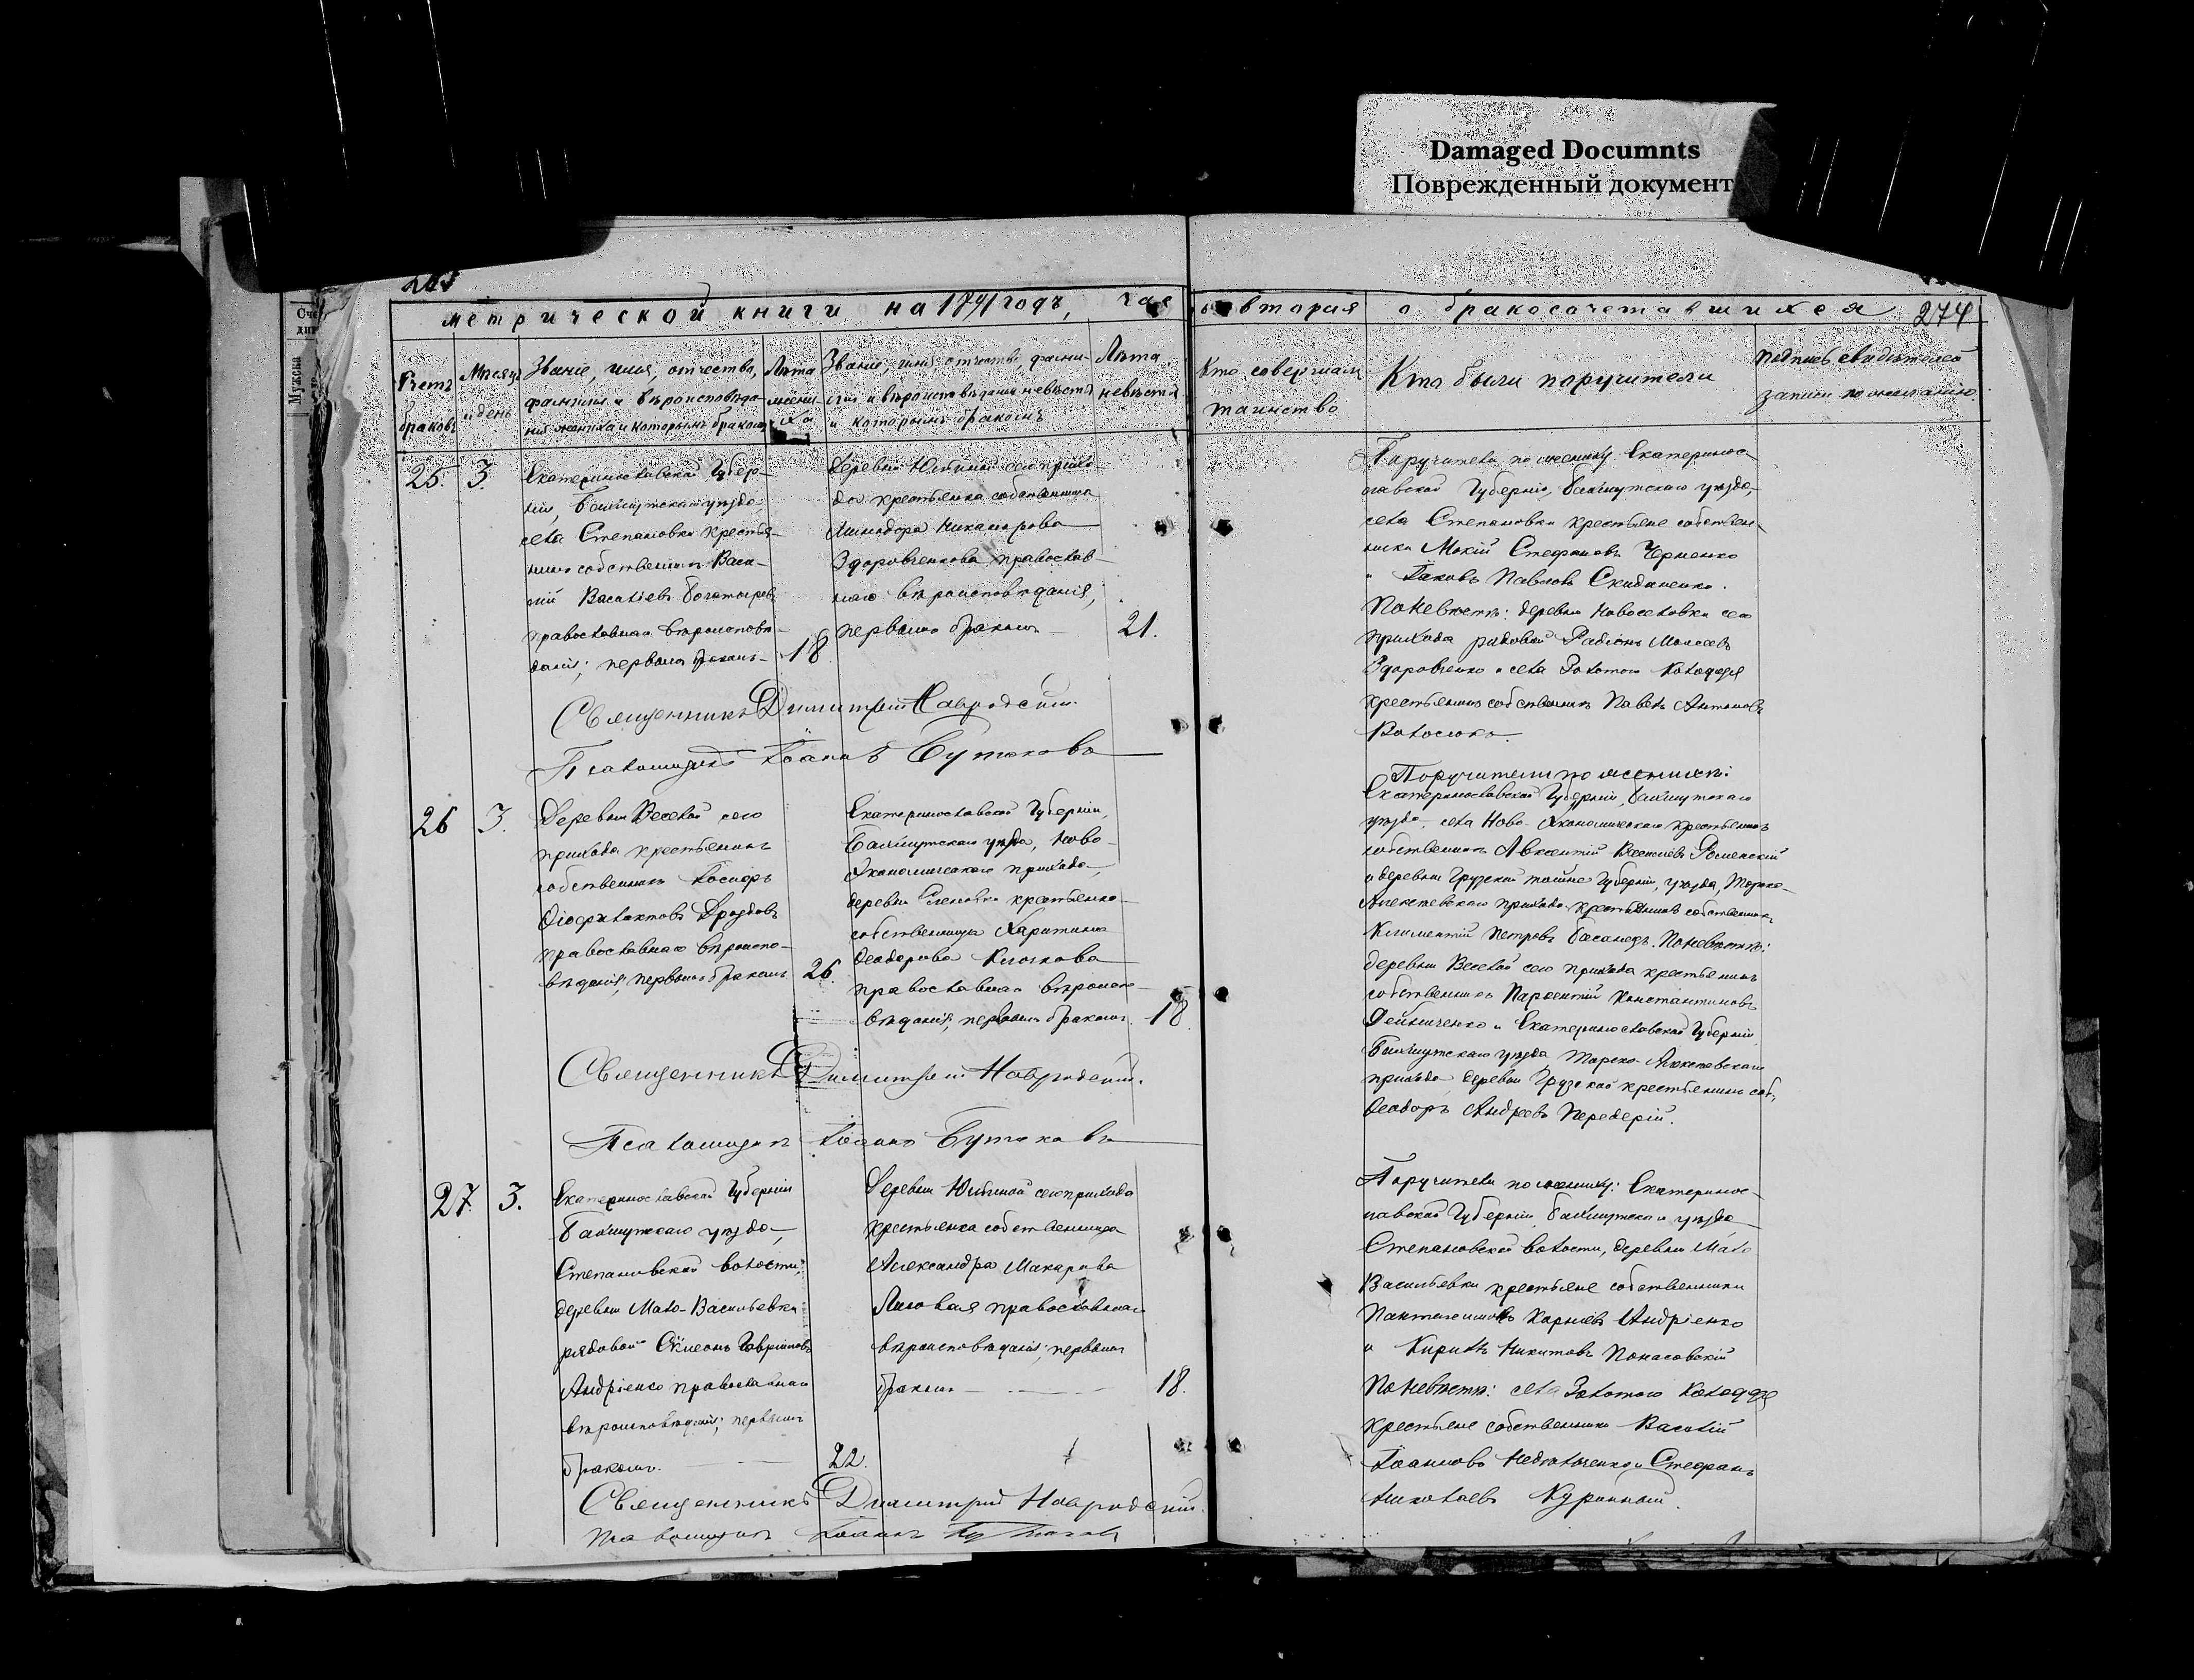 Damaged Documnts
Поврежденный документ
274
метрической книги на годъ, час
вторая о бракосочетавшихся
Счетъ
браковъ
Мѣсяцъ
и день
Званіе, имя, отчество,
фамилія и вѣроисповѣда-
ніе жениха и которымъ бракомъ
Лѣта
жени-
ха
Званіе, имя, отчество, фами-
лія и вѣроисповѣданіе невѣсты
и которымъ бракомъ
Лѣта
невѣсты
Кто совершалъ
таинство
Кто были поручители
подпись свидѣтелей
записи по желанію
Мужска
25. 3.
Екатеринославской Губер-
ніи, Бахмутскаго уѣзда,
села Степановки крестья-
нинъ собственникъ Васи-
лій Васильевъ Богатыревъ
православнаго вѣроисповѣ-
данія; первымъ бракомъ
18
Деревни сего прихо-
да крестьянка собственница
Минодора Никанорова
Здоровченкова православ-
наго вѣроисповѣданія,
первымъ бракомъ
21.
Поручители по жениху Екатерино-
славской Губерніи, Бахмутскаго уѣзда,
села Степановки крестьяне собствен-
ники Мокій Стефановъ Черненко
и Іаковъ Павловъ Скиданенко.
По невѣстѣ: деревни Новоселовки сего
прихода рядовой Радіонъ Моисеевъ
Здоровченко и села Золотого Колодезя
крестьянинъ собственникъ Павелъ Антоновъ
Священникъ Димитрій Навродскій
Псаломщикъ Іоаннъ Бутаковъ
26 3.
Деревни Веселой сего
прихода крестьянинъ
собственникъ Іосифъ
Ѳеофилактовъ Дроздовъ
православнаго вѣроиспо-
вѣданія, первымъ бракомъ
26.
Екатеринославской Губерніи,
Бахмутскаго уѣзда, Ново-
Экономическаго прихода,
деревни Еленовки крестьянка
собственница Харитина
Ѳеодорова Клочкова
православнаго вѣроиспо-
вѣданія, первымъ бракомъ
18
Поручители по женихѣ:
Екатеринославской Губерніи, Бахмутскаго
уѣзда, села Ново-Экономическаго крестьянинъ
собственникъ Авксентій Роменскій
и деревни Грузской той же Губерніи, уѣзда,
Алексѣевскаго прихода крестьянинъ собственникъ
Климентій Петровъ По невѣстѣ:
деревни Веселой сего прихода крестьянинъ
собственникъ Константиновъ
и Екатеринославской Губерніи
Бахмутскаго уѣзда Алексѣевскаго
прихода деревни Грузской крестьянинъ соб.
Ѳеодоръ Андреевъ Передерій.
Священникъ Димитрій Навродскій.
Псаломщикъ Іоаннъ Бутаковъ
27. 3.
Екатеринославской Губерніи
Бахмутскаго уѣзда,
Степановской волости,
деревни Мало-Васильевки
рядовой Гавриловъ
Андріенко православнаго
вѣроисповѣданія; первымъ
бракомъ.
22.
Деревни сего прихода
крестьянка собственница
Александра Макарова
Лысовая православнаго
вѣроисповѣданія; первымъ
бракомъ
18.
Поручители по жениху: Екатеринос-
лавской Губерніи Бахмутскаго уѣзда
Степановской волости, деревни Мало
Васильевки крестьяне собственники
Пантелеимонъ Карповъ Андріенко
и Кириллъ Никитовъ Понасовскій
По невѣстѣ: села Золотого Колодезя
крестьяне собственники Василій
Іоанновъ и Стефанъ
Николаевъ Куринный.
Священникъ Димитрій Навродскій.
Псаломщикъ Іоаннъ Бутаковъ